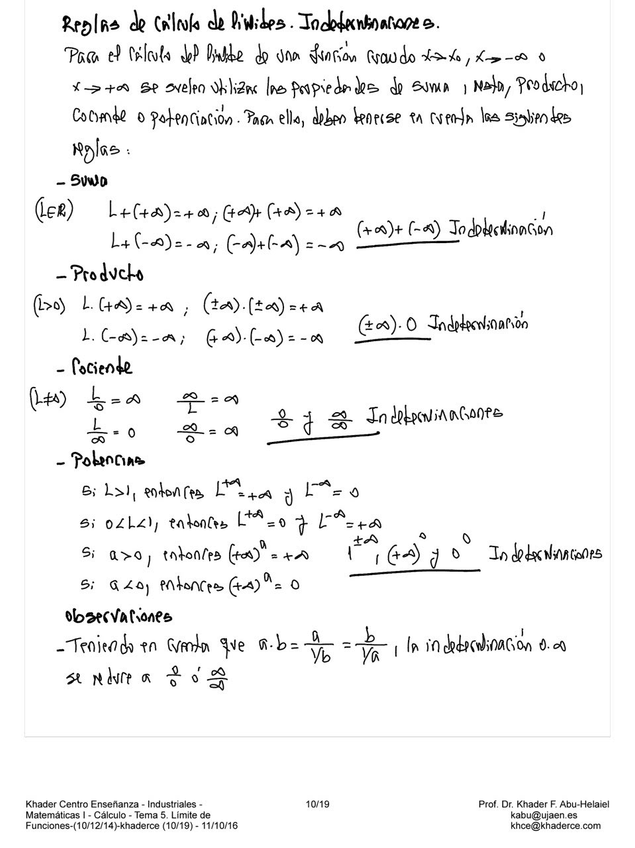 Reglas de cálculo de límites. Indeterminaciones.
Para el cálculo del límite de una función cuando x→x₀, x→-∞ o
x→+∞ se suelen utilizar las propiedades de suma, resta, producto,
cociente o potenciación. Para ello, deben tenerse en cuenta las siguientes
reglas:
- Suma
(L∈ℝ) L+(+∞)=+∞; (+∞)+(+∞)=+∞
L+(-∞)=-∞; (-∞)+(-∞)=-∞ (+∞)+(-∞) Indeterminación
- Producto
(L>0) L.(+∞)=+∞; (±∞).(±∞)=+∞
L.(-∞)=-∞; (+∞).(-∞)=-∞ (±∞).0 Indeterminación
- Cociente
(L≠0) L/0=∞ ∞/L=∞
L/∞=0 ∞/0=∞ 0/0 y ∞/∞ Indeterminaciones
- Potencias
Si L>1, entonces L^+∞=+∞ y L^-∞=0
Si 0<L<1, entonces L^+∞=0 y L^-∞=+∞
Si a>0, entonces (+∞)^a=+∞ 1^±∞, (+∞)^0 y 0^0 Indeterminaciones
Si a<0, entonces (+∞)^a=0
Observaciones
- Teniendo en cuenta que a.b=a/(1/b)=b/(1/a), la indeterminación 0.∞
se reduce a 0/0 ó ∞/∞
Khader Centro Enseñanza - Industriales -
Matemáticas I - Cálculo - Tema 5. Límite de
Funciones-(10/12/14)-khaderce (10/19) - 11/10/16
10/19
Prof. Dr. Khader F. Abu-Helaiel
kabu@ujaen.es
khce@khaderce.com